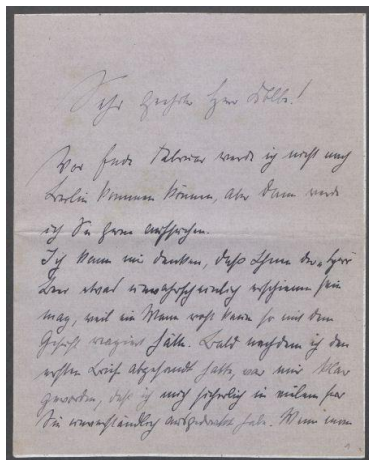 Sehr geehrter Herr Kolle!
Vor Ende Februar werde ich nicht nach
Berlin kommen können, aber dann werde
ich Sie gerne aufsuchen.
Ich kann mir denken, daß Ihnen der
etwas unwahrscheinlich erschienen sein
mag, weil ein Mann wohl kaum so mit dem
Gesicht reagiert hätte. Bald nachdem ich den
ersten Brief abgesandt hatte, war mir klar
geworden, daß ich mich sicherlich in vielem für
Sie unverständlich ausgedrückt habe. Wenn man